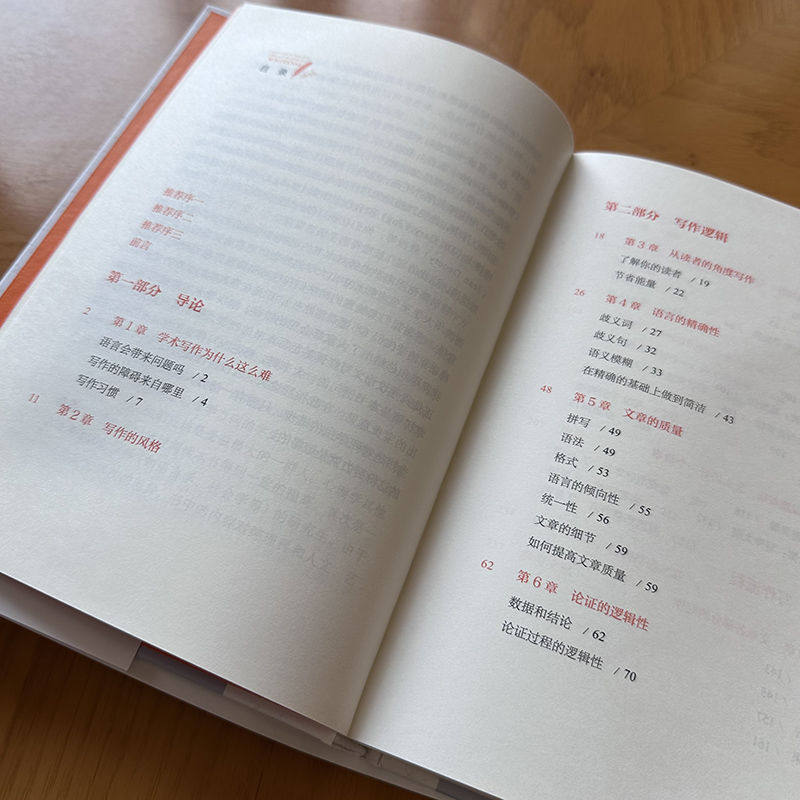 目录
推荐序一
推荐序二
推荐序三
前言
第一部分 导论
2 第1章 学术写作为什么这么难
语言会带来问题吗 / 2
写作的障碍来自哪里 / 4
写作习惯 / 7
11 第2章 写作的风格
第二部分 写作逻辑
18 第3章 从读者的角度写作
了解你的读者 / 19
节省能量 / 22
26 第4章 语言的精确性
歧义词 / 27
歧义句 / 32
语义模糊 / 33
在精确的基础上做到简洁 / 43
48 第5章 文章的质量
拼写 / 49
语法 / 49
格式 / 53
语言的倾向性 / 55
统一性 / 56
文章的细节 / 59
如何提高文章质量 / 59
62 第6章 论证的逻辑性
数据和结论 / 62
论证过程的逻辑性 / 70